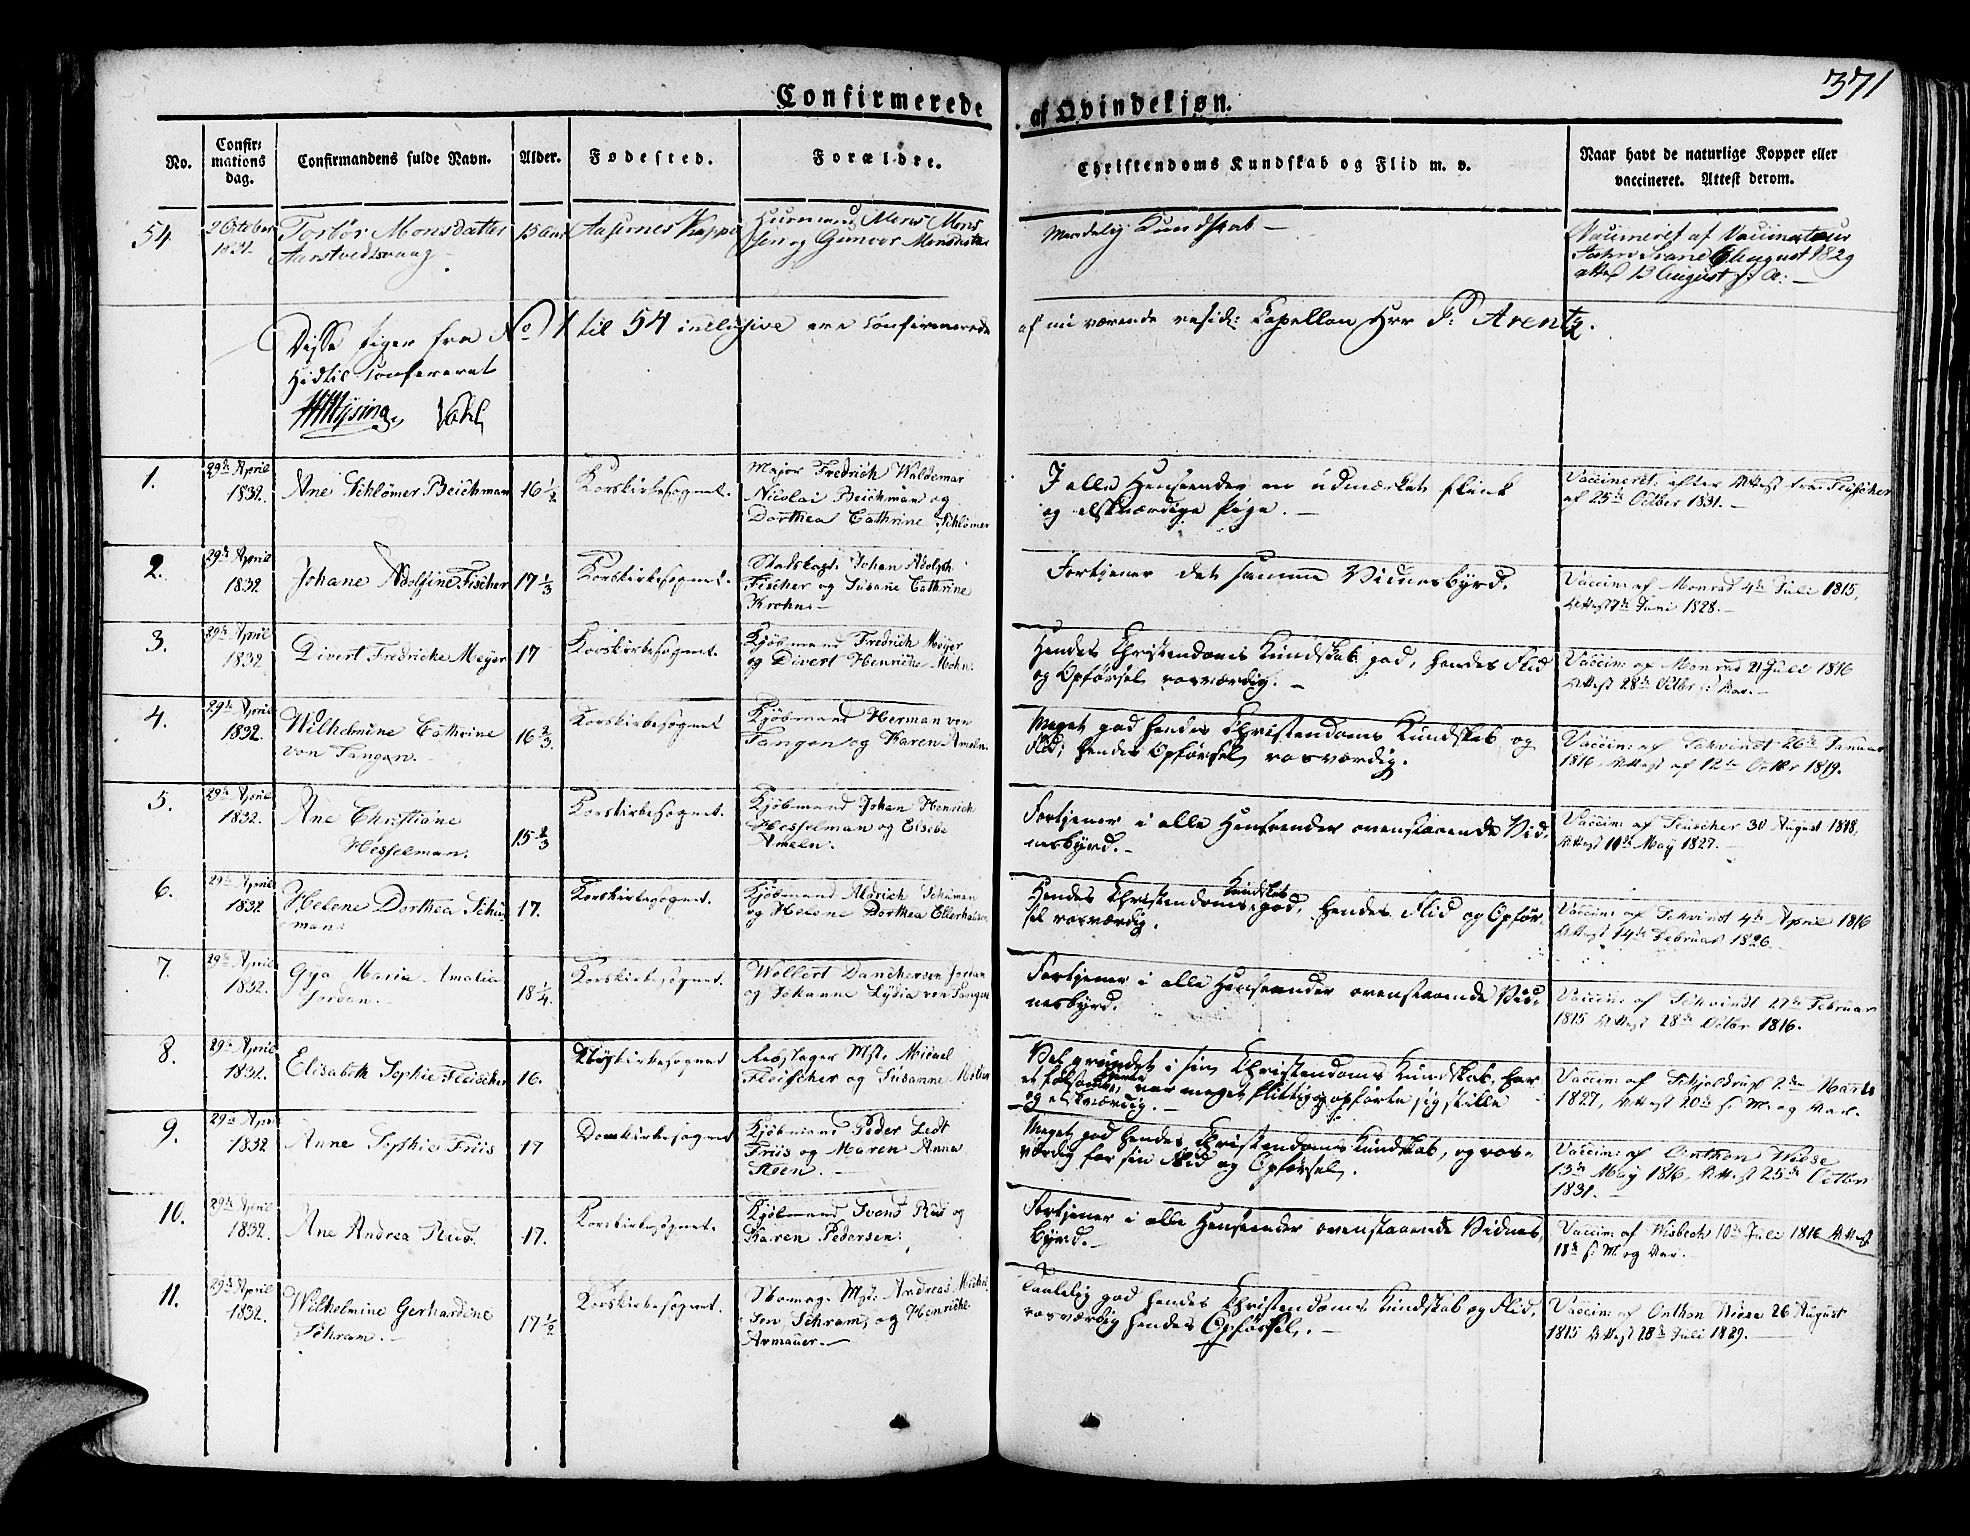 371
Confirmerede
af Qvindekjøn.
No.
Confir-
mations
dag.
Confirmandens fulde Navn.
Alder.
Fødested.
Forældre.
Christendoms Kundskab og Flid m. v.
Naar havt de naturlige Kopper eller
vaccineret. Attest derom.
54
2 October
1831.
Torbør Monsdatter
Aarstvedtsvaag
Huusmand Mons Mons
sen og Gunvor Monsdatter
Maadelig Kundskab
Vaccineret af Vaccinateur
August 1829
Attest 13 August s: A:
Disse Piger fra No 1 til 54 inclusive ere Confirmerede af nu værende resid: Capellan Hrr P: Arentz.
Hidtil Confereret
Vahl
1.
29de April
1832.
Ane Schlömer Beichman
16 1/2
Korskirkesognet.
Major Fredrich Waldemar
Nicolai Beichman og
Dorthea Cathrine Schlömer
I alle Henseender en udmærket flink
og elskværdige Pige.
Vaccineret efter Attest fra Fleischer
af 25de Octber 1831.
2.
29de April
1832
Johane Adolfine Fischer
17 1/3
Korskirkesognet.
Stadskapt. Johan Adolph
Fischer og Susane Cathrine
Krohn.
Fortjener det samme Vidnesbyrd.
Vaccin: af Monrad 4de Juli 1815,
Attest 7de Juni 1828.
3.
29de April
1832
Divert Fredricke Meyer
17
Korskirkesognet.
Kjøbmand Fredrich Meyer
og Divert Henriche Mohn.
Hendes Christendoms Kundskab god, hendes Flid
og Opførsel rosværdig.
Vaccin: af Monrad 21 Juli 1816
Attest 28de Octbr s: Aar.
4.
29de April
1832.
Wilhelmine Cathrine
von Tangen.
16 2/3
Korskirkesognet
Kjøbmand Herman von
Tangen og Karen Ameln.
Meget god hendes Christendoms Kundskab og
Flid; hendes Opførsel rosværdig.
Vaccin: af Schvindt 26de Januar
1816, Attest af 12te Octbr 1819.
5.
29de April
1832.
Ane Christiane
Hesselman.
15 2/3
Korskirkesognet.
Kjøbmand Johan Henrich
Hesselman og Elsebe
Ameln.
Fortjener i alle Henseender ovenstaaende Vid-
nesbyrd.
Vaccin: af Fleischer 30 August 1818,
Attest 10de May 1827.
6.
29de April
1832
Helene Dorthea Schu
man.
17.
Korskirkesognet.
Kjøbmand Aldrich Schuman
og Helene Dorthea Ellerhusen
Hendes Christendoms Kundskab god, hendes Flid og Opfør-
sel rosværdig.
Vaccin: af Schvindt 4de April 1816
Attest 14de Februar 1826.
7.
29de April
1832.
Gya Maria Amalia
Jordan.
18 1/4.
Korskirkesognet.
Wollert Danckertsen Jordan
og Johanne Lydia von Tangen
Fortjener i alle Henseender ovenstaaende Vid-
nesbyrd.
Vaccin: af Schvindt 27de Februar
1815 Attest 28de Octbr 1816.
8.
29de April
1832.
Elisabeth Sophie Fleischer
16.
Korskirkesognet
Rebslager Mst: Michael
Fleischer og Susanne
Vel grundet i sin Christendoms Kundskab, har
var meget flittig og opførte sig stille
og elskværdig.
Vaccin: af Schjoldrup 2den Marts
1827, Attest 20de s: M: og Aar.
9.
29de April
1832
Anne Sophie Friis
17
Domkirkesognet
Kjøbmand Peder Ledt
Friis og Maren Anna
Steen.
Meget god hendes Christendoms Kundskab, og ros-
værdig for sin Flid og Opførsel.
Vaccin: af Anthon Wiese
13de May 1816, Attest 25de Octbr
1831.
10.
29de April
1832.
Ane Andrea Riis.
17.
Korskirkesognet.
Kjøbmand Svens Riis og
Karen Pedersen.
Fortjener i alle Henseender ovenstaaende Vidnes
byrd.
Vaccin: af Wisbech 10de Juli 1816 Attest
18de s: M og Aar.
11.
29de April
1832.
Wilhelmine Gerhardine
Schram.
17 1/2
Korskirkesognet.
Skomag: Mst: Andreas Michel
sen Schram, og Henriche
Armauer.
Taalelig god hendes Christendoms Kundskab og Flid,
rosværdig hendes Opførsel.
Vaccin: af Onthon Wiese 26 August
1815 Attest 28de Juli 1829.